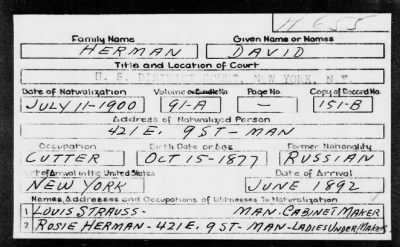 H 655
Family Name Given Name or Names
HERMAN DAVID
Title and Location of Court
U. S. DISTRICT COURT, NEW YORK, N.Y.
Date of Naturalization Volume or Bundle No Page No. Copy of Record No.
JULY 11-1900 91-A — 151-B
Address of Naturalized Person
421 E. 9 ST-MAN
Occupation Birth Date or Age Former Nationality
CUTTER OCT 15-1877 RUSSIAN
rt of Arrival in the United States Date of Arrival
NEW YORK JUNE 1892
Names, Addresses and Occupations of Witnesses To Naturalization
1 LOUIS STRAUSS- MAN-CABINET MAKER
2 ROSIE HERMAN-421 E. 9 ST-MAN-LADIES UNDER MAKER